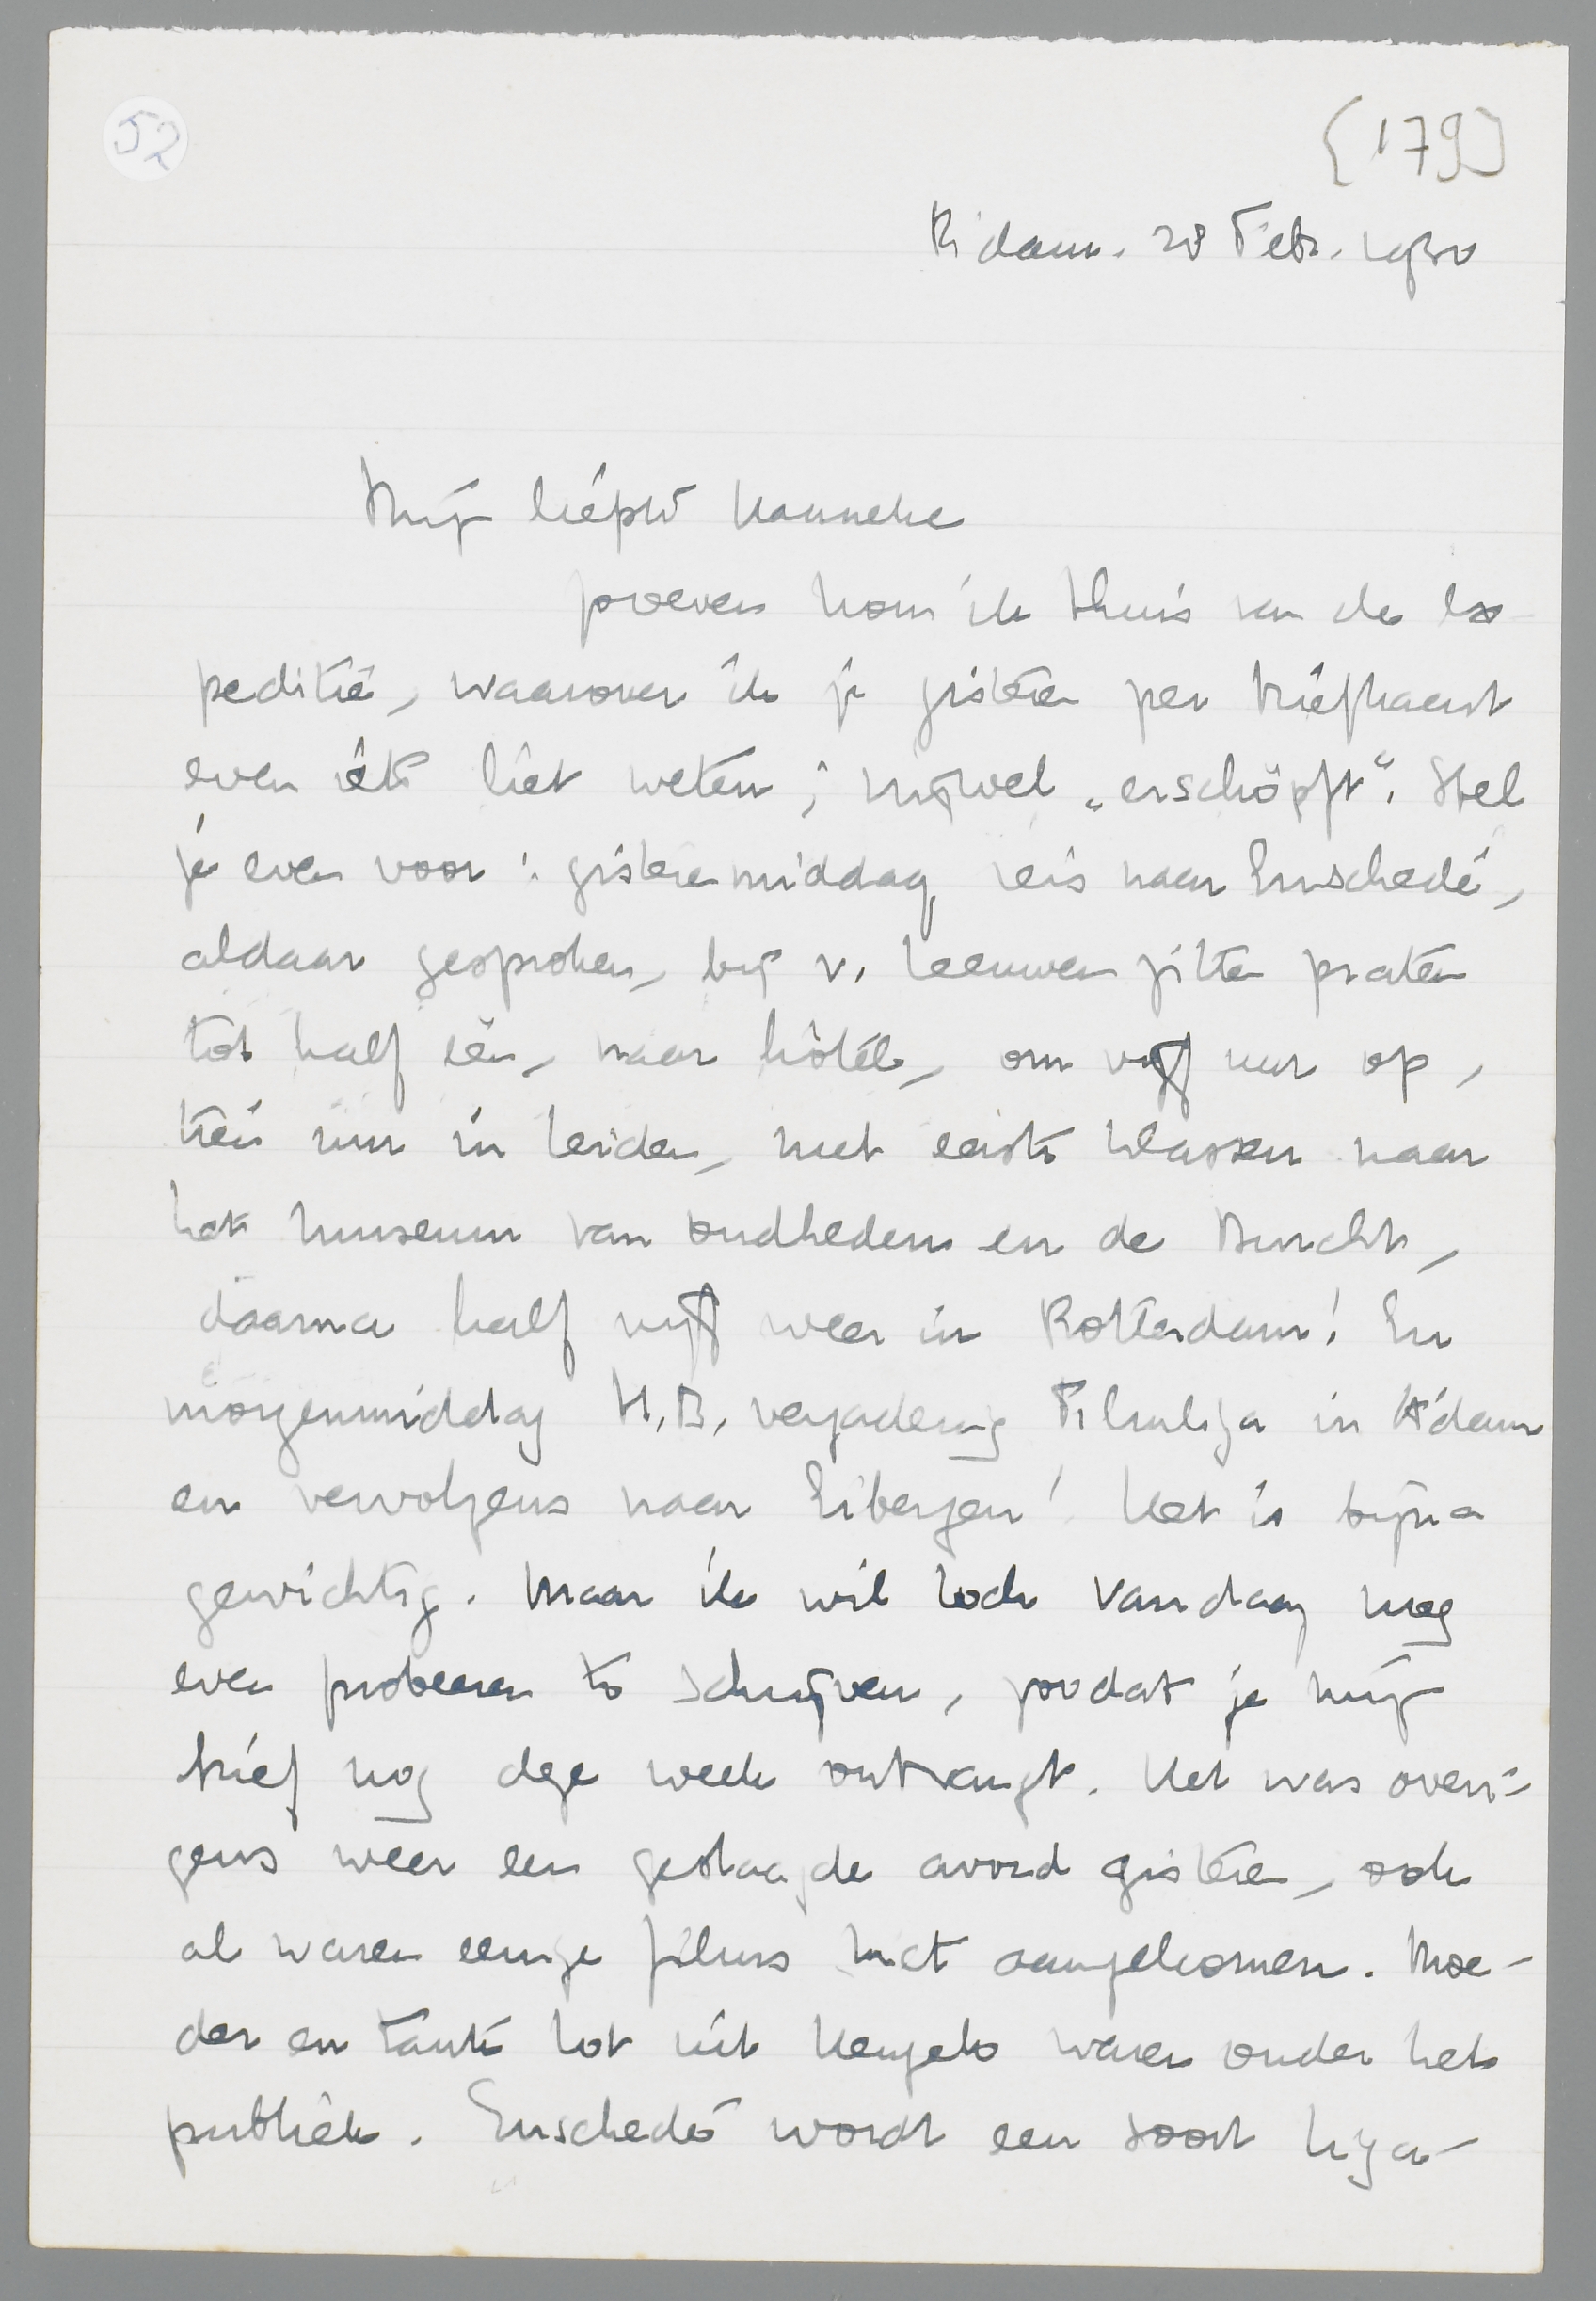 52
[179]
R'dam. 28 Febr. 1930
Mijn liefste Hanneke
zooeven kom ik thuis van de ex-
peditie, waarover ik je gisteren per briefkaart
even iets liet weten; vrijwel „erschöpft". Stel
je even voor: gisterenmiddag reis naar Enschedé,
aldaar gesproken, bij v. Leeuwen zitten praten
tot half één, naar hôtel, om vijf uur op,
tien uur in Leiden, met eerste klassen naar
het museum van oudheden en de Burcht,
daarna half vijf weer in Rotterdam! En
morgenmiddag H.B. vergadering Filmliga in A'dam
en vervolgens naar Eibergen! Het is bijna
gewichtig. Maar ik wil toch vandaag nog
even probeeren te schrijven, zoodat je mijn
brief nog deze week ontvangt. Het was overi-
gens weer een geslaagde avond gisteren, ook
al waren eenige films niet aangekomen. Moe-
der en tante Lot uit Hengelo waren onder het
publiek. Enschedé wordt een soort liga-